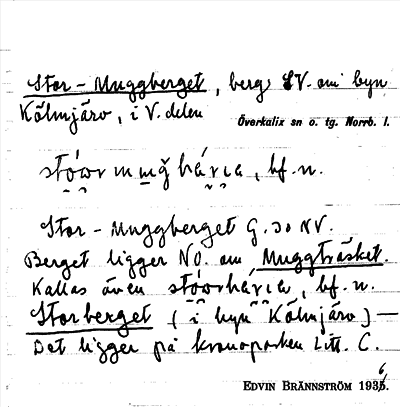 Stor-Muggberget, berg SV. om byn
Kölmjärv, i V. delen
Överkalix sn o. tg. Norrb. l.
bf. n.
Stor-Muggberget G. 30 NV.
Berget ligger NO. om Muggträsket.
Kallas även bf. n.
Storberget (i byn Kölmjärv) —
Det ligger på kronoparken Litt. C.
EDVIN BRÄNNSTRÖM 1936.